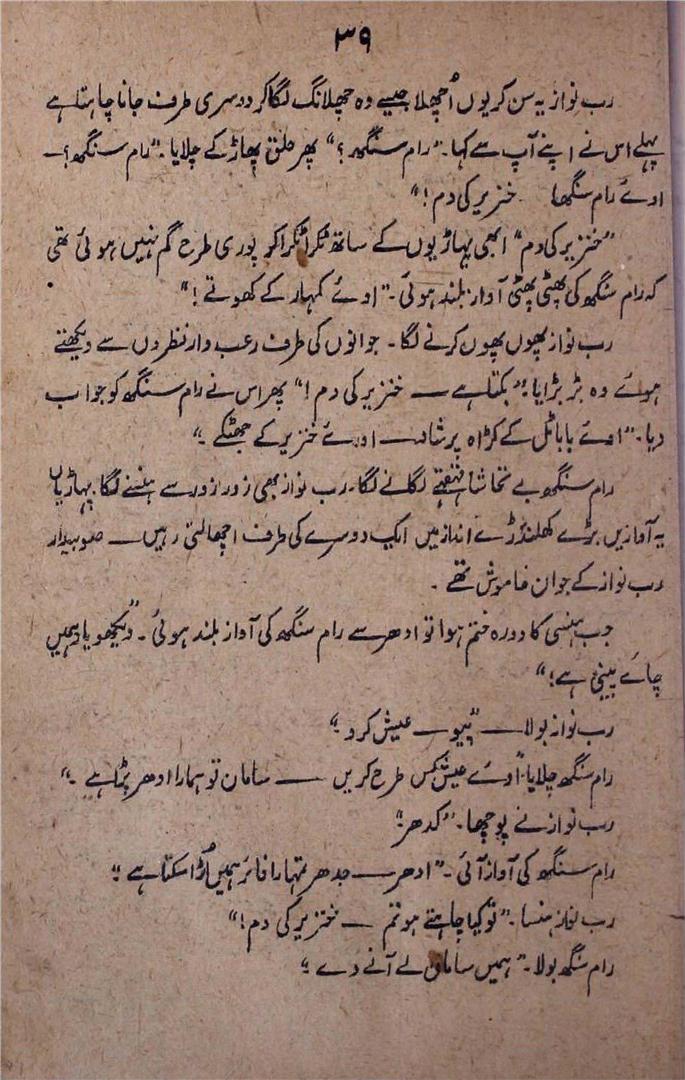 ۳۹
رب نواز یہ سن کر یوں اُچھلا جیسے وہ چھلانگ لگا کر دوسری طرف جانا چاہتا ہے
پہلے اس نے اپنے آپ سے کہا۔ "رام سنگھ؟" پھر حلق پھاڑ کے چلایا۔ "رام سنگھ؟—
اوئے رام سنگھا خنزیر کی دم!"
"خنزیر کی دم" ابھی پہاڑیوں کے ساتھ ٹکرا ٹکرا کر پوری طرح گم نہیں ہوئی تھی
کہ رام سنگھ کی پھٹی پھٹی آواز بلند ہوئی۔ "اوئے کمہار کے کھوتے!"
رب نواز پھوں پھوں کرنے لگا۔ جوانوں کی طرف رعب دار نظروں سے دیکھتے
ہوئے وہ بڑبڑایا۔ "بکتا ہے — خنزیر کی دم!" پھر اس نے رام سنگھ کو جواب
دیا۔ "اوئے بابا ٹل کے کڑاہ پرشاد — اوئے خنزیر کے جھٹکے۔"
رام سنگھ بے تحاشا قہقہے لگانے لگا۔ رب نواز بھی زور زور سے ہنسنے لگا۔ پہاڑیاں
یہ آوازیں بڑے کھلنڈرے انداز میں ایک دوسرے کی طرف اچھالتی رہیں — صوبیدار
رب نواز کے جوان خاموش تھے۔
جب ہنسی کا دورہ ختم ہوا تو ادھر سے رام سنگھ کی آواز بلند ہوئی۔ "دیکھو یار ہمیں
چائے پینی ہے!"
رب نواز بولا — "پیو — عیش کرو۔"
رام سنگھ چلایا "اوئے عیش کس طرح کریں — سامان تو ہمارا ادھر پڑا ہے۔"
رب نواز نے پوچھا۔ "کدھر"
رام سنگھ کی آواز آئی۔ "ادھر — جدھر تمہارا فائر ہمیں اُڑا سکتا ہے"
رب نواز ہنسا۔ "تو کیا چاہتے ہو تم — خنزیر کی دم!"
رام سنگھ بولا۔ "ہمیں سامان لے آنے دے"